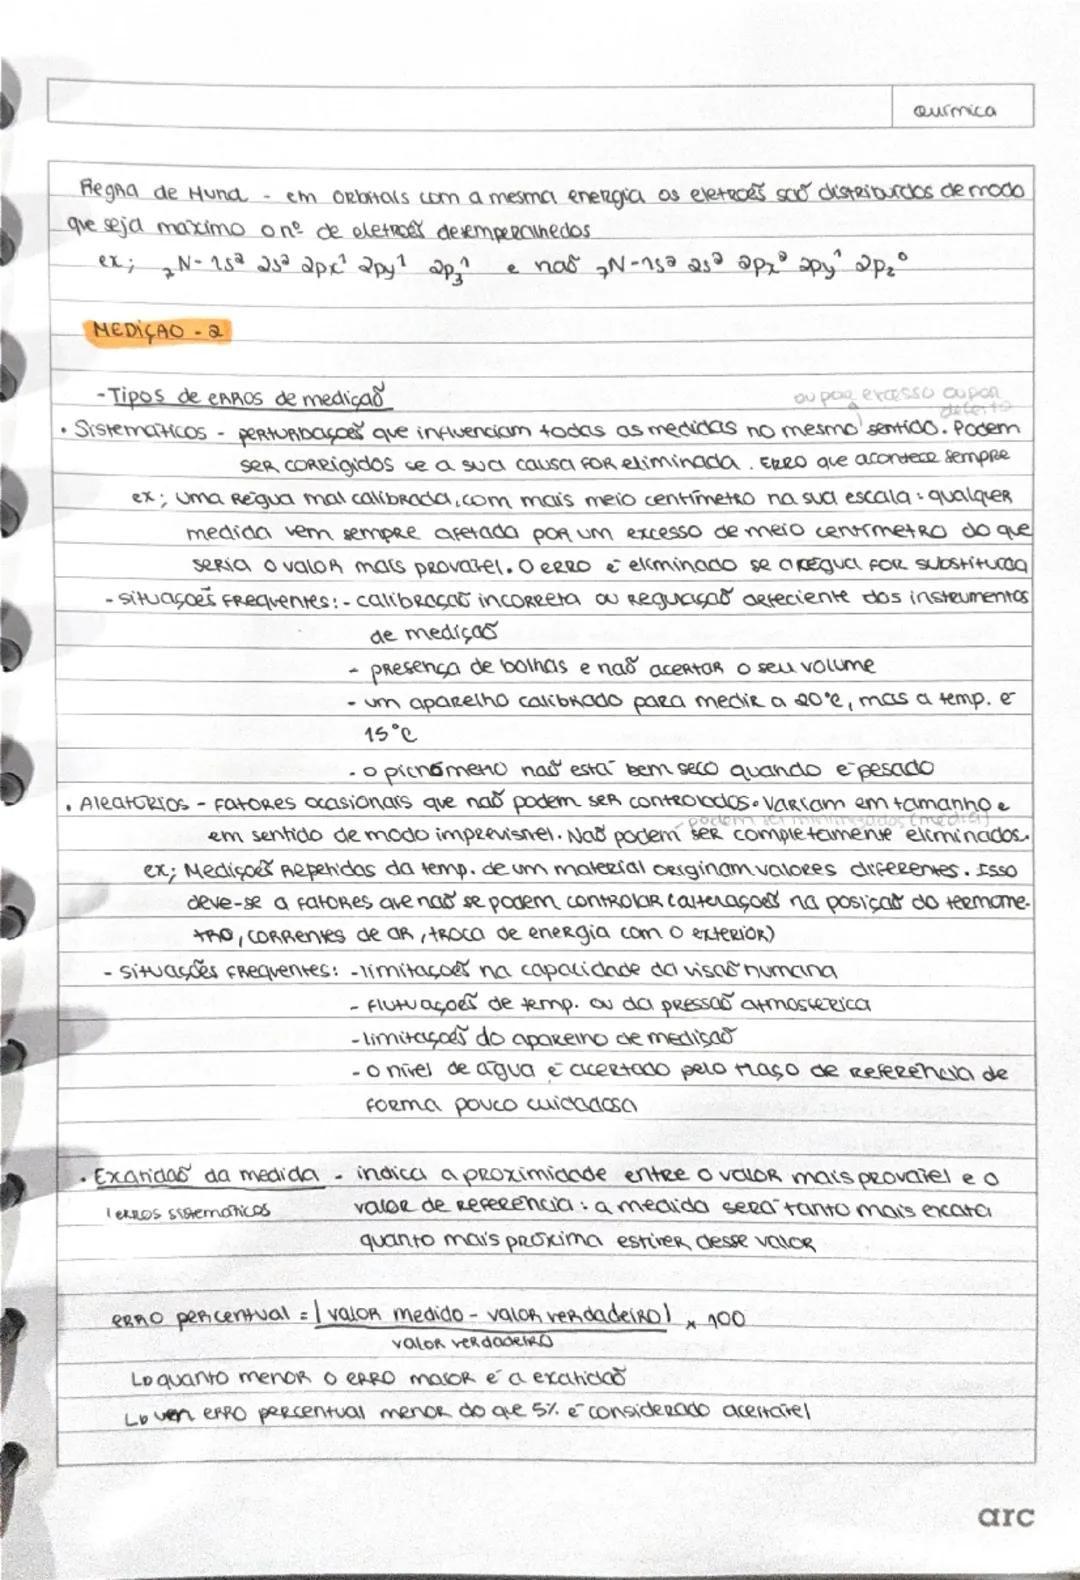 Química
Regra de Hund - em orbitais com a mesma energia os eletrões são distribuídos de modo
que seja máximo o nº de eletrões desemparelhados
ex; ₇N - 1s² 2s² 2px¹ 2py¹ 2p₃¹ e não ₇N - 1s² 2s² 2px² 2py¹ 2pz⁰
MEDIÇÃO - 2
- Tipos de erros de medição
ou por excesso ou por
defeito
• Sistemáticos - perturbações que influenciam todas as medidas no mesmo sentido. Podem
ser corrigidos se a sua causa for eliminada. Erro que acontece sempre
ex; Uma régua mal calibrada, com mais meio centímetro na sua escala: qualquer
medida vem sempre afetada por um excesso de meio centímetro do que
seria o valor mais provável. O erro é eliminado se a régua for substituída
- situações frequentes: - calibração incorreta ou regulação defeciente dos instrumentos
de medição
- presença de bolhas e não acertar o seu volume
- um aparelho calibrado para medir a 20°C, mas a temp. é
15°C
- o picnómetro não está bem seco quando é pesado
• Aleatórios - fatores ocasionais que não podem ser controlados. Variam em tamanho e
podem ser minimizados (média)
em sentido de modo imprevisível. Não podem ser completamente eliminados.
ex; Medições repetidas da temp. de um material originam valores diferentes. Isso
deve-se a fatores que não se podem controlar (alterações na posição do termóme-
tro, correntes de ar, troca de energia com o exterior)
- situações frequentes: - limitações na capacidade da visão humana
- flutuações de temp. ou da pressão atmosférica
- limitações do aparelho de medição
- o nível de água é acertado pelo traço de referência de
forma pouco cuidadosa
• Exatidão da medida - indica a proximidade entre o valor mais provável e o
| erros sistemáticos
valor de referência: a medida será tanto mais exata
quanto mais próxima estiver desse valor
erro percentual = | valor medido - valor verdadeiro | x 100
valor verdadeiro
↳ quanto menor o erro maior é a exatidão
↳ um erro percentual menor do que 5% é considerado aceitável
arc